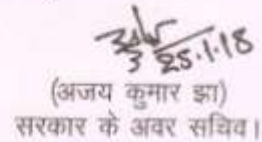 25.1.18
(अजय कुमार झा)
सरकार के अवर सचिव।